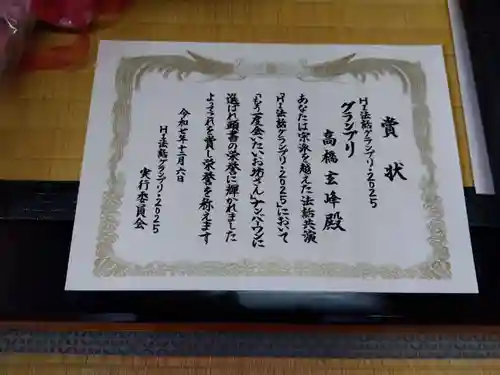 賞状
H1法話グランプリ・2025
グランプリ
高橋玄峰殿
あなたは宗派を超えた法話共演
「H1法話グランプリ・2025」において
「もう一度会いたいお坊さん」ナンバーワンに
選ばれ頭書の栄誉に輝かれました
よってこれを賞し栄誉を称えます
令和七年十二月六日
H1法話グランプリ・2025
実行委員会